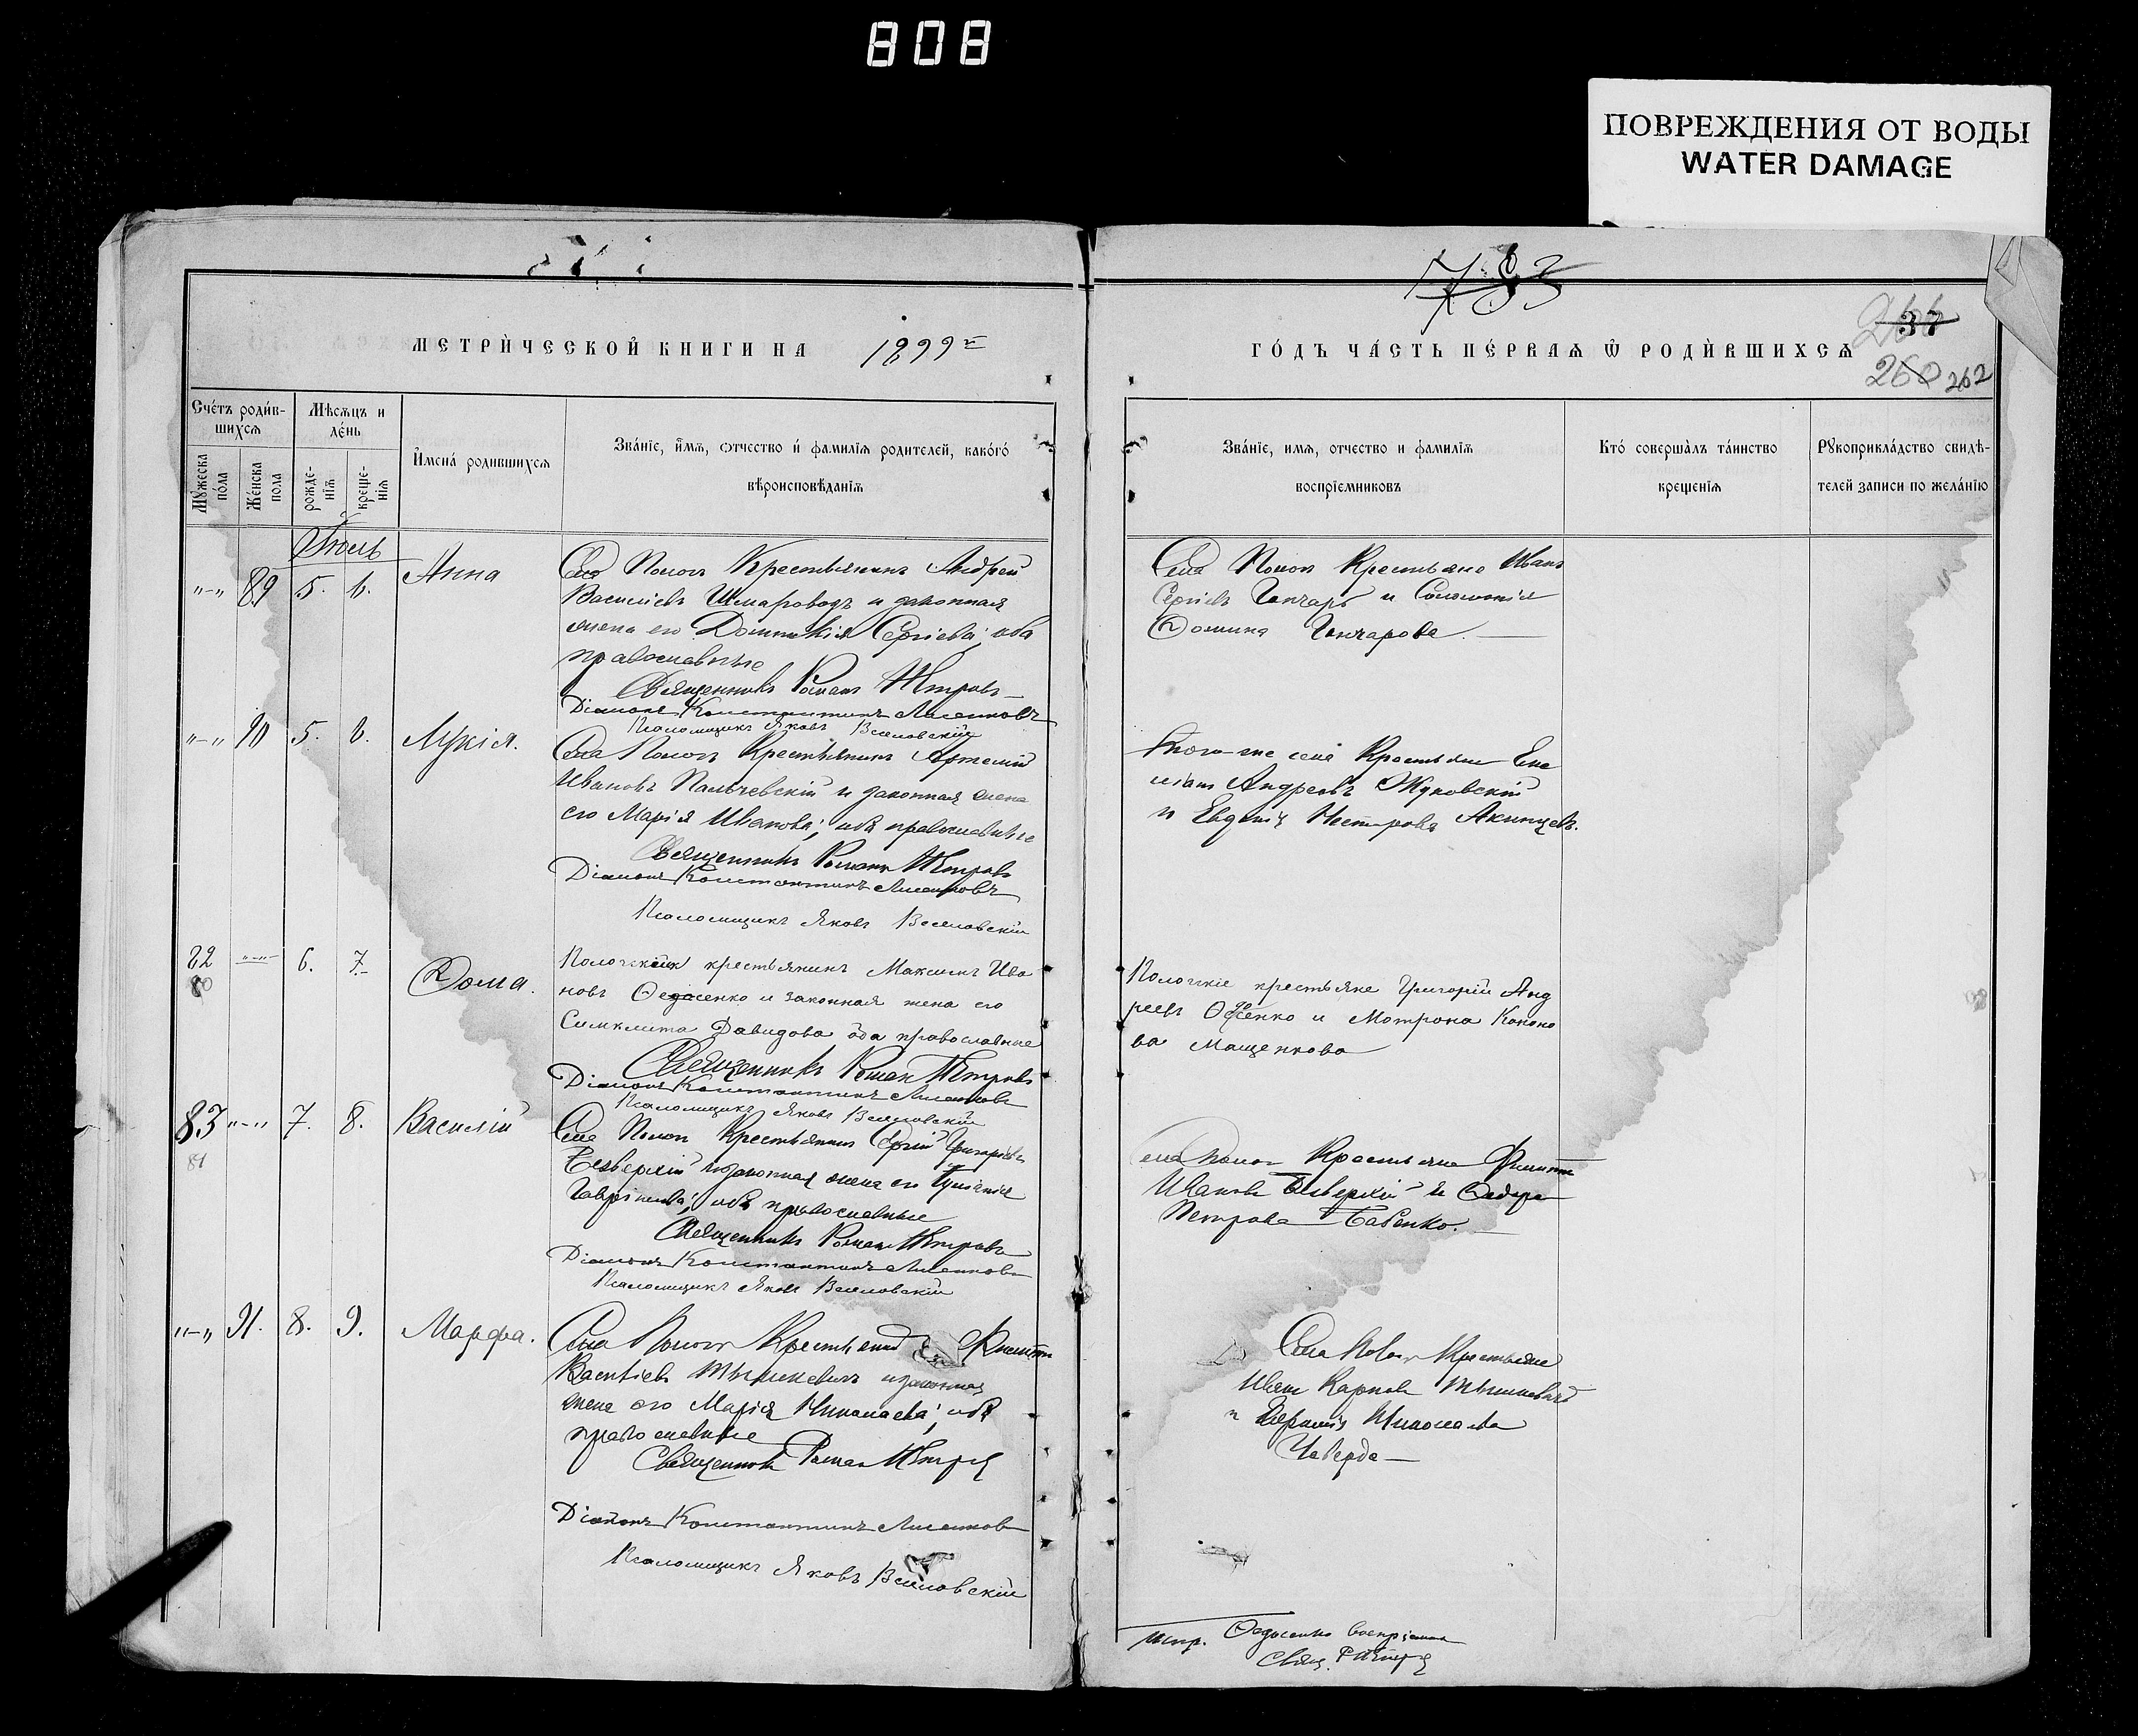 808
ПОВРЕЖДЕНИЯ ОТ ВОДЫ
WATER DAMAGE
783
37
260 262
МЕТРИ́ЧЕСКОЙ КНИГИ НА 1899 г
ГО́ДЪ ЧА́СТЬ ПЕ́РВАѦ Ѿ РОДИ́ВШИХСѦ
Сче́тъ роди́в-
шихсѧ
Мꙋ́жеска по́ла
Же́нска пола
Мѣсѧцъ и
де́нь
рожде-
нїѧ
креще-
нїѧ
И҆мена́ родившихсѧ
Зва́нїе, и҆мѧ, ѻтчество и҆ фамилїѧ родителей, како́гѡ
вѣроисповѣданїѧ
Зва́нїе, имѧ, отчество и фамилїѧ
воспрїемниковъ
Кто́ соверша̀лъ та́инство
крещенїѧ
Рꙋкоприкла́дство свидѣ-
телей записи по жела́нїю
Іюль
"-" 89 5. 6. Анна
Села Полог Крестьянинъ Андрей
Василіевъ Шмаровозъ и законная
жена его Домникія Сергіева; оба
православные
Священникъ Роман Петровъ
Діаконъ Константинъ Лисенковъ
Псаломщикъ Яковъ Веселовскій
Села Полог Крестьяне Иванъ
Сергіевъ Гончаръ и Соломонія
Ѳомина Гончарова.
"-" 90 5. 6. Лукія.
Села Полог Крестьянинъ Артемій
Ивановъ Пальчевскій и законная жена
его Марія Иванова; оба православные
Священникъ Роман Петровъ
Діаконъ Константинъ Лисенковъ
Псаломщикъ Яковъ Веселовскій
того-же села Крестьяне Еме
ліан Андреевъ Жуковскій
и Евдокія Нестерова
82 "-" 6. 7. Ѳома.
80
крестьянинъ Максимъ Ива
новъ Ѳедосенко и законная жена его
Синклита Давидова оба православные
Священникъ Роман Петровъ
Діаконъ Константинъ Лисенковъ
Псаломщикъ Яковъ Веселовскій
Пологскіе крестьяне Григорій Анд
реевъ и Мотрона Конono
ва Мащенкова
83 "-" 7. 8. Василій
81
Села Полог Крестьянинъ Сергій Григорьевъ
Безверхій и законная жена его
Гавриилова; оба православные
Священникъ Роман Петровъ
Діаконъ Константинъ Лисенковъ
Псаломщикъ Яковъ Веселовскій
Села Полог Крестьяне Филиппъ
Иванов Безверхій и Ѳедора
Петрова Бабенко.
"-" 91. 8. 9. Марфа.
Села Полог Крестьянинъ Филиппъ
Василіевъ Тышкевичъ и законная
жена его Марія Николаева; оба
православные
Священникъ Роман Петровъ
Діаконъ Константинъ Лисенковъ
Псаломщикъ Яковъ Веселовскій
Села Полог Крестьяне
Иван Карпов Тышкевичъ
и Николаева
Чаверда
испр. Ѳедосенко
Свящ. Р Петровъ